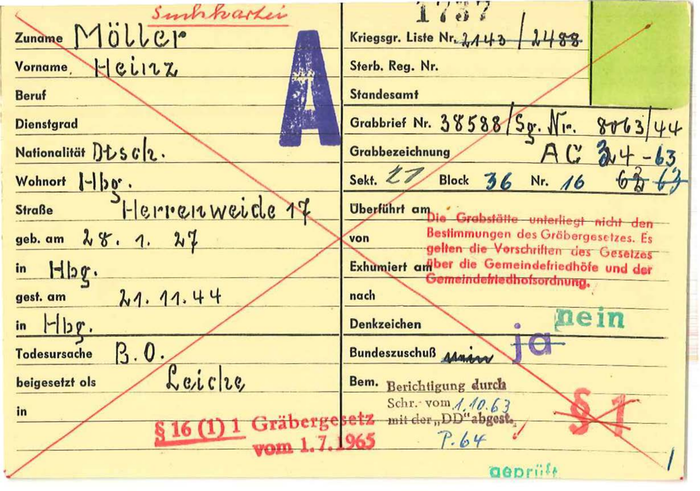 Suchkartei
Zuname Möller
Vorname Heinz
Beruf
Dienstgrad
Nationalität Dtsch.
Wohnort Hbg.
Straße Herrenweide 17
geb. am 28. 1. 27
in Hbg.
gest. am 21. 11. 44
in Hbg.
Todesursache B. O.
beigesetzt als Leiche
in
A
§ 16 (1) 1 Gräbergesetz
vom 1.7.1965
1737
Kriegsgr. Liste Nr. 2143 / 2488
Sterb. Reg. Nr.
Standesamt
Grabbrief Nr. 38588/Sg. Nr. 8063/44
Grabbezeichnung
Sekt. 21 Block 36 Nr. 16
Überführt am
von
Exhumiert am
nach
Die Grabstätte unterliegt nicht den
Bestimmungen des Gräbergesetzes. Es
gelten die Vorschriften des Gesetzes
über die Gemeindefriedhöfe und der
Gemeindefriedhofsordnung.
Denkzeichen
nein
ja
Bundeszuschuß nein
Bem. Berichtigung durch
Schr. vom 1.10.63
mit der „DD" abgest.
P. 64
§ 1
1
geprüft